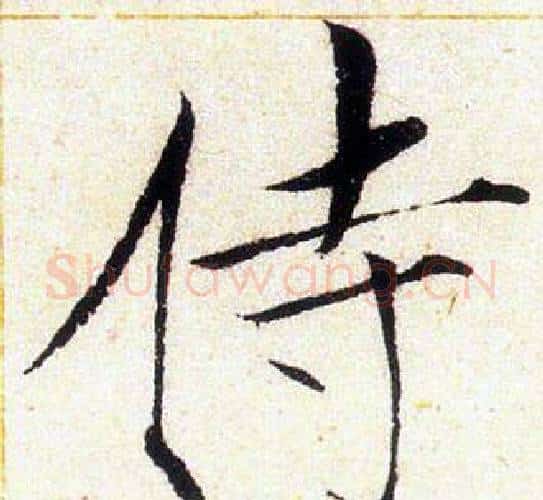 侍
Shufawang.CN